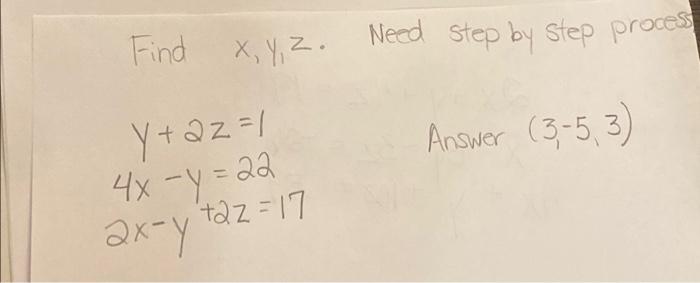 Find x, y, z. Need step by step process
y + 2z = 1
Answer (3,-5,3)
4x - y = 22
2x - y + 2z = 17